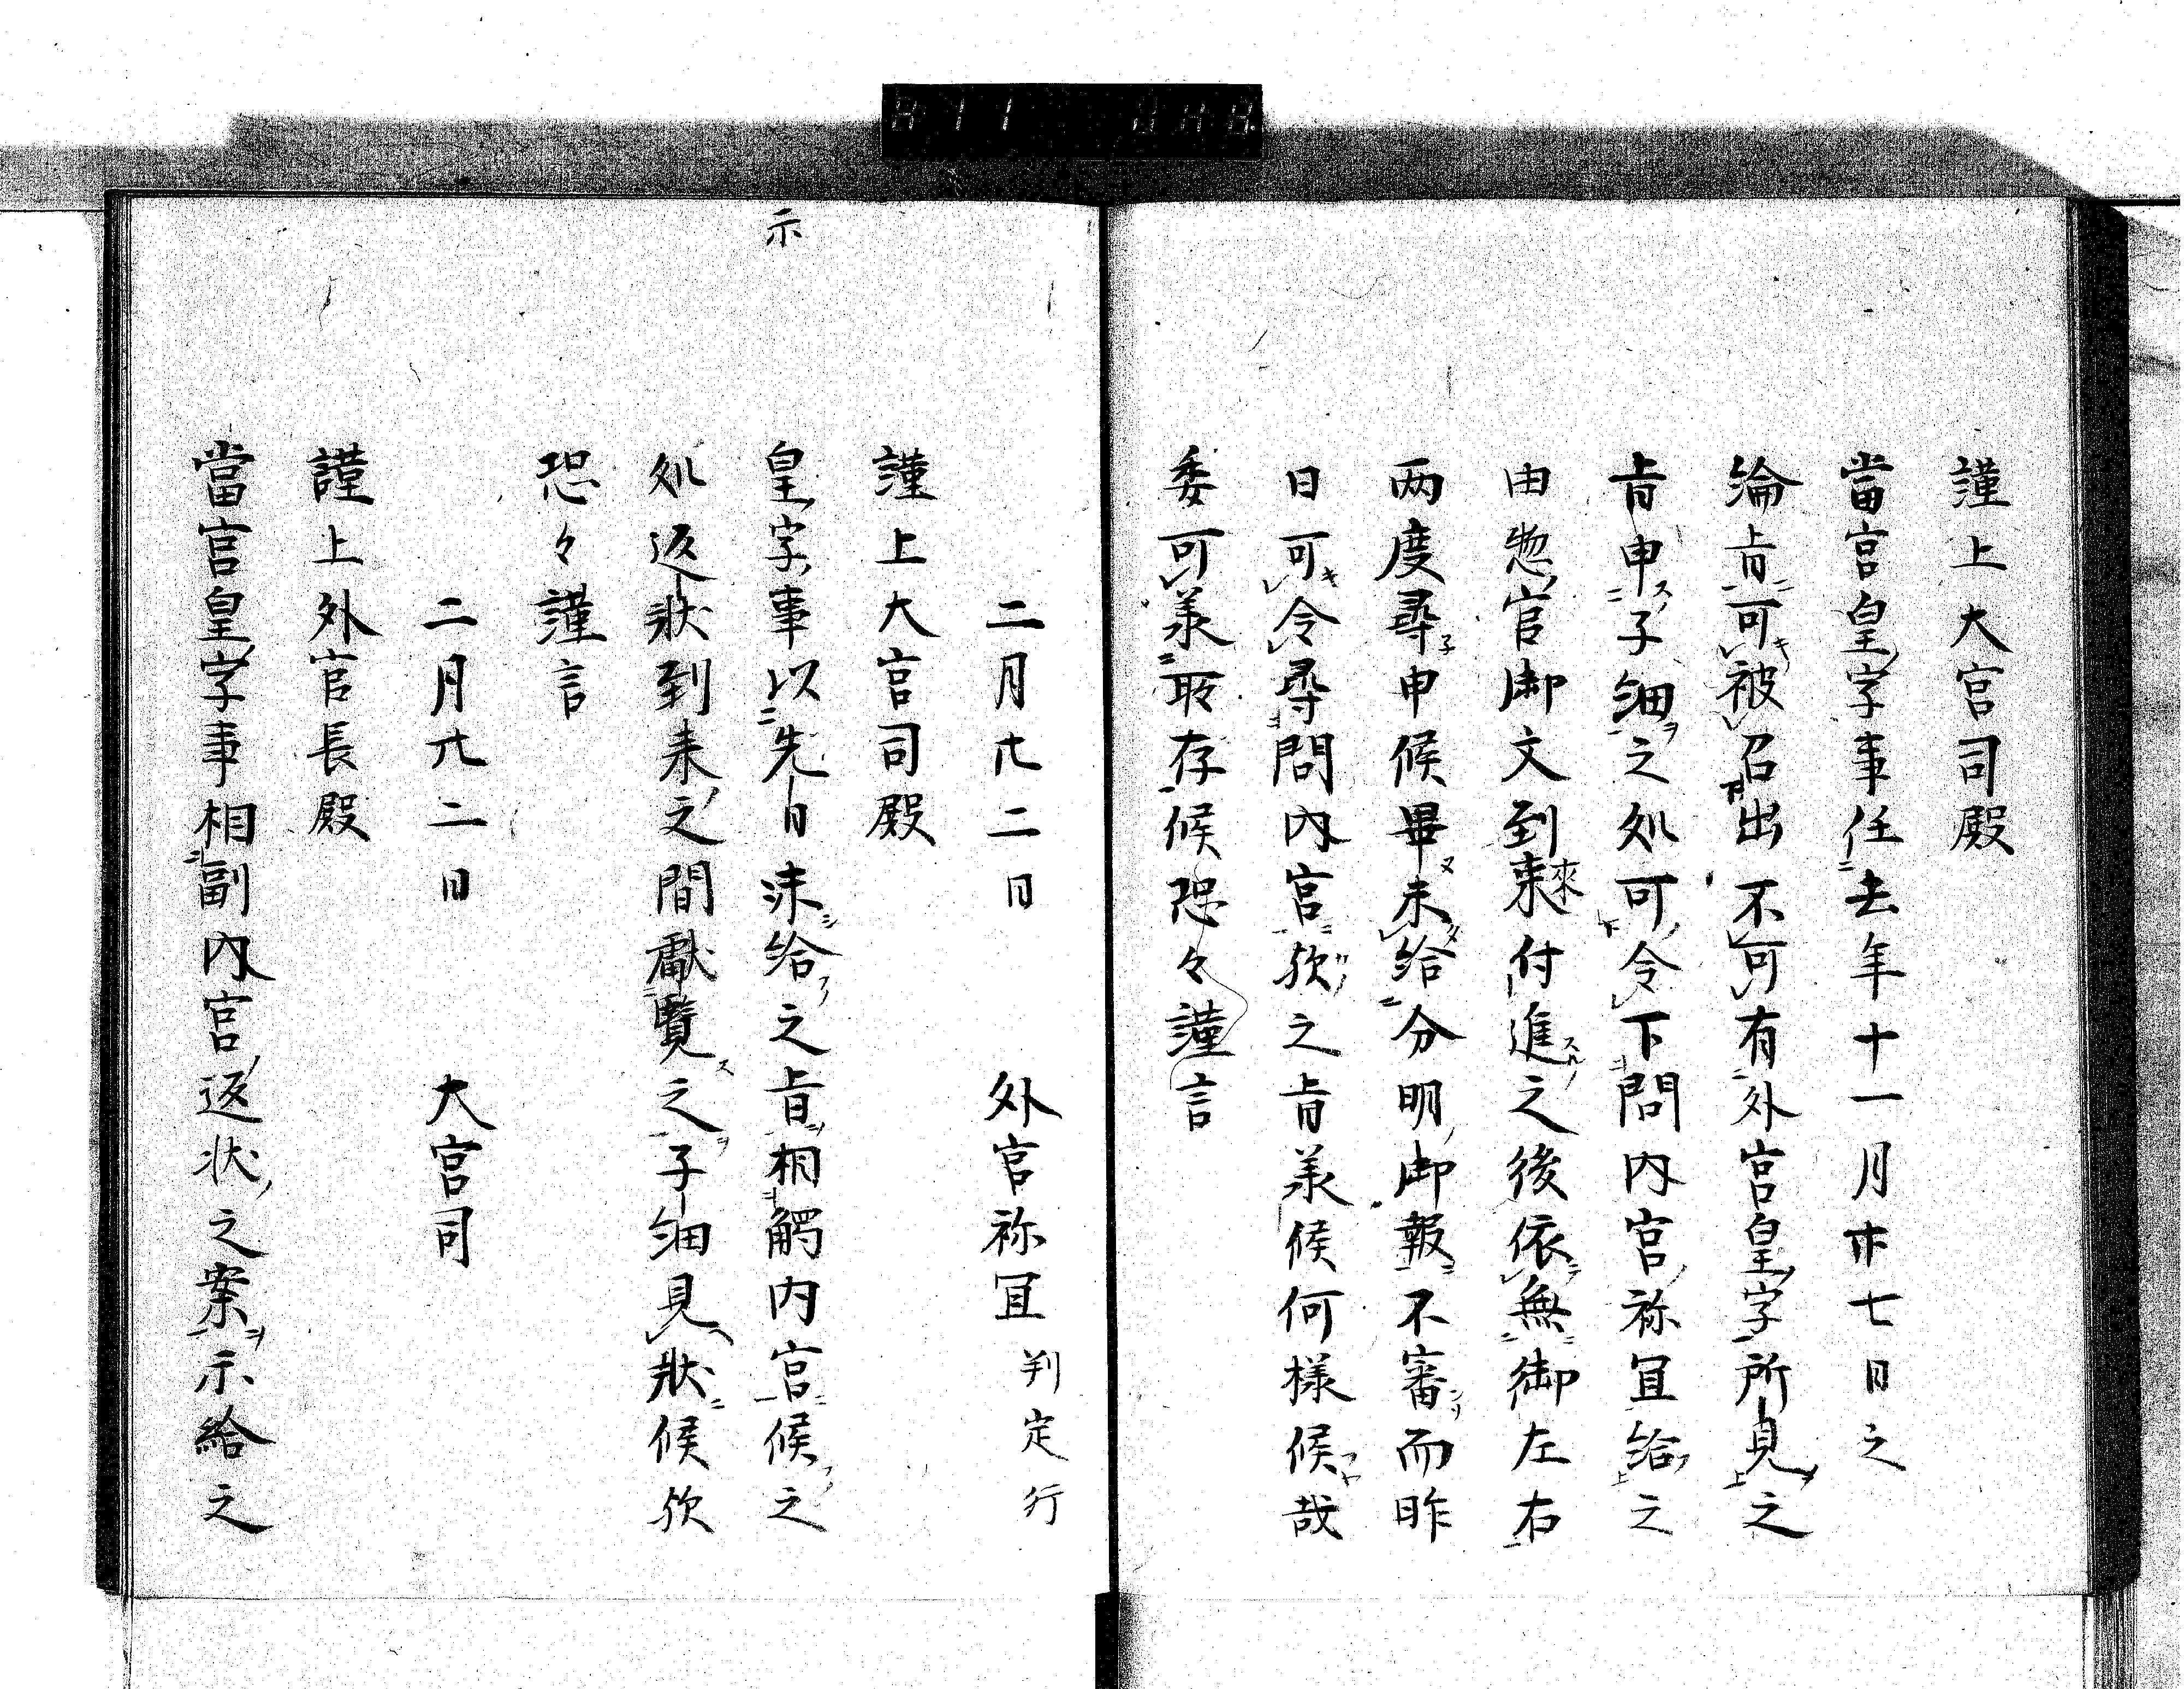 謹上大宮司殿
當宮皇字事任去年十一月廿七日之
綸旨可被召出不可有外宮皇字所見之
旨申子細之処可令下問内宮祢冝給之
由惣官御文到来付進之後依無御左右
両度尋申候畢未給分明御報不審而昨
日可令尋問内宮欤之旨承候何樣候哉
委可承取存候恐々謹言
二月廿二日　外宮祢冝判定行
謹上大宮司殿
示
皇字事以先日沫給之旨相觸内宮候之
処返狀到来之間獻覽之子細見狀候欤
恐々謹言
二月廿二日　大宮司
謹上外宮長殿
當宮皇字事相副内宮返状之案示給之